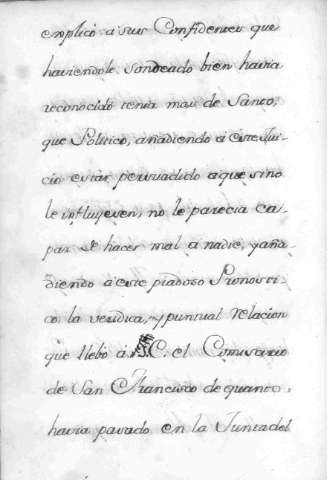 explicó à sus Confidentes que
haviendole sondeado bien havia
reconocido tenia mas de Santo,
que Politico, añadiendo à este Jui-
cio estàr persuadido a que sino
le influyesen, no le parecia ca-
paz de hacer mal a nadie, y aña-
diendo a este piadoso Pronosti-
co la veridica, y puntual relacion
que llebò á C. el Comisario
de San Francisco de quanto
havia pasado en la Junta del